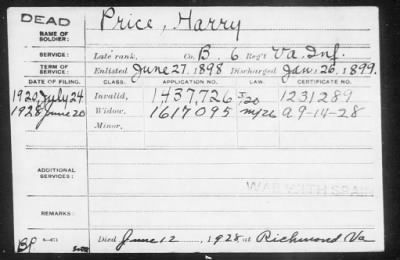 DEAD
NAME OF SOLDIER: Price, Harry
SERVICE: Late rank, Co. B. 6 Reg't Va. Inf.
TERM OF SERVICE: Enlisted June 27, 1898 Discharged Jan, 26, 1899.
DATE OF FILING. CLASS. APPLICATION NO. LAW. CERTIFICATE NO.
1920, July 24 Invalid, 1,437,726 1231289
1928 June 20 Widow, 1617095 A 9-14-28
Minor,
ADDITIONAL SERVICES:
WAR WITH SPAIN
REMARKS:
Died June 12, 1928 at Richmond Va